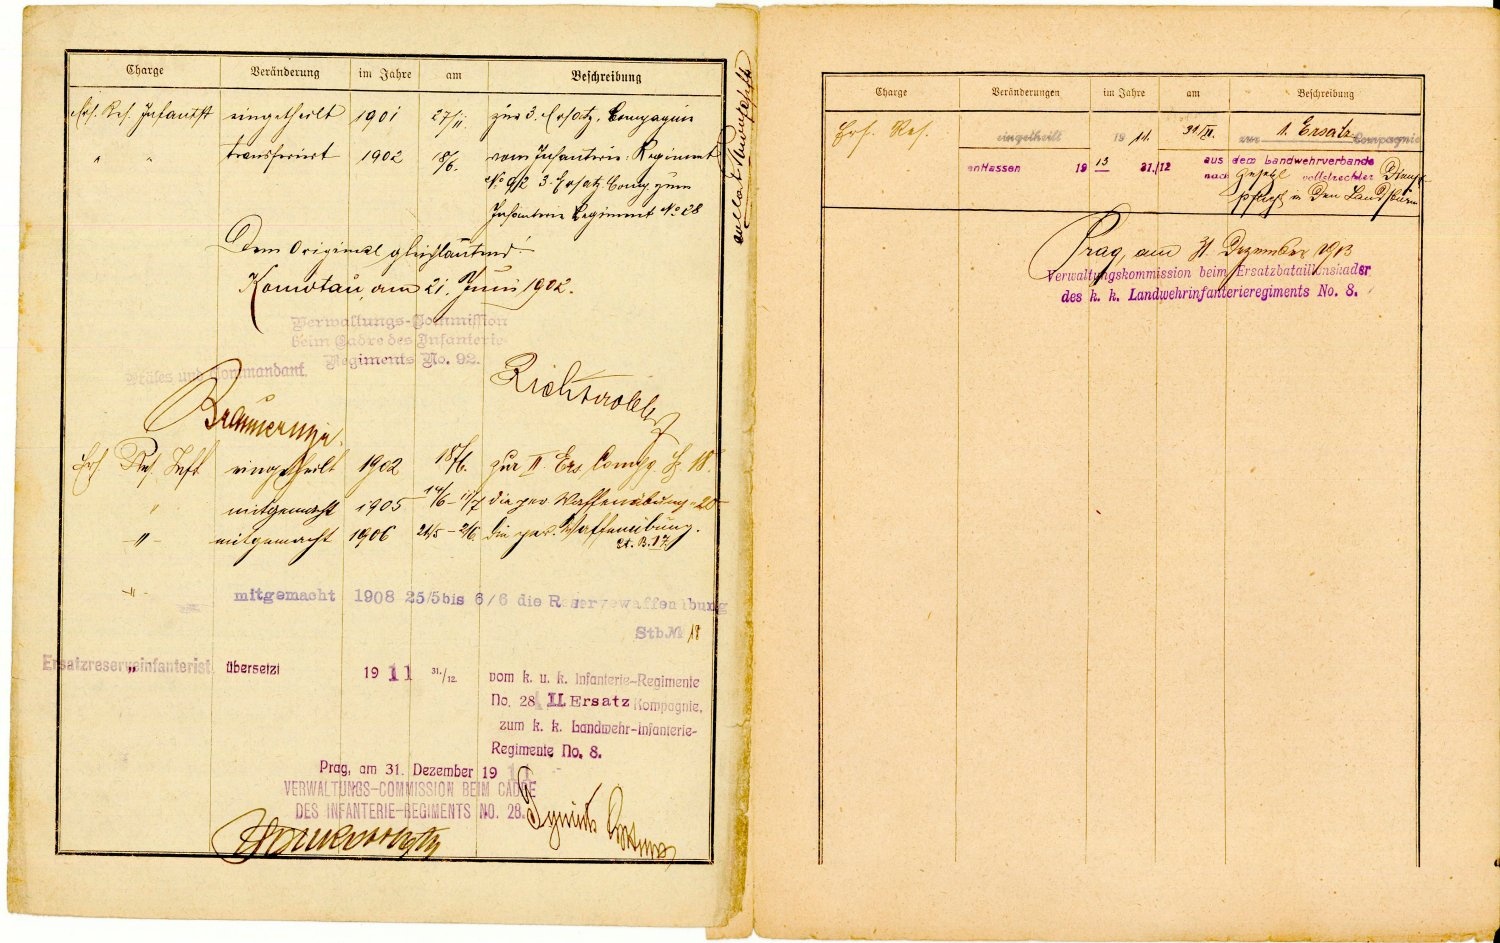 Charge Veränderung im Jahre am Beschreibung
Ers. Res. Infantst eingetheilt 1901 27/II. zur 3. Ersatz. Compagnie
" " transferiert 1902 18/6. vom Infanterie: Regiment
No 92 3. Ersatz Comp zum
Infanterie Regiment No 28
Dem Original gleichlautend!
Komotau, am 21. Juni 1902.
Verwaltungs-Commission
beim Cadre des Infanterie-
Regiments No. 92.
Präses und Commandant.
Ers. Res. Inft. eingetheilt 1902 18/6. zur II. Ers. Comp.
" mitgemacht 1905 14/6-11/7 die per. Waffenübung
-"- mitgemacht 1906 21/5-2/6. die per. Waffenübung.
St. B. 17
-"- mitgemacht 1908 25/5 bis 6/6 die Reservewaffenübung
Stb.№ 18
Ersatzreserveinfanterist. " übersetzt 1911 31./12. vom k. u. k. Infanterie-Regimente
No. 28 II Ersatz Kompagnie,
zum k. k. Landwehr-Infanterie-
Regimente No. 8.
Prag, am 31. Dezember 1911
VERWALTUNGS-COMMISSION BEIM CADRE
DES INFANTERIE-REGIMENTS NO. 28.
Charge Veränderungen im Jahre am Beschreibung
Ers. Res. eingeteilt 19 zur 1. Ersatz Compagnie
entlassen 1913 31./12 aus dem Landwehrverbande
nach Gesetzl vollstreckter Dienst-
pflicht in den Landsturm
Prag, am 31. Dezember 1913
Verwaltungskommission beim Ersatzbataillonskader
des k. k. Landwehrinfanterieregiments No. 8.